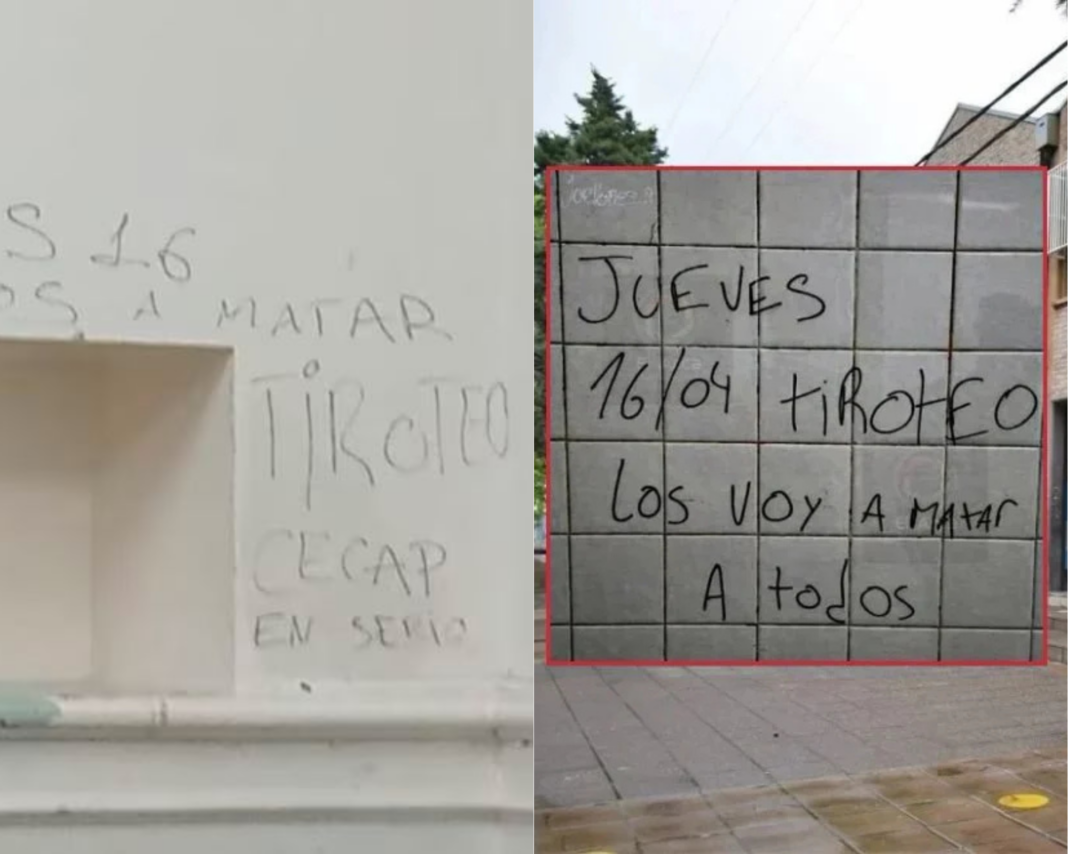 S 16
OS A MATAR
TIROTEO
CECAP
EN SERIO
JUEVES
16/04 tiROtEO
LOS VOY A MAtAr
A todos